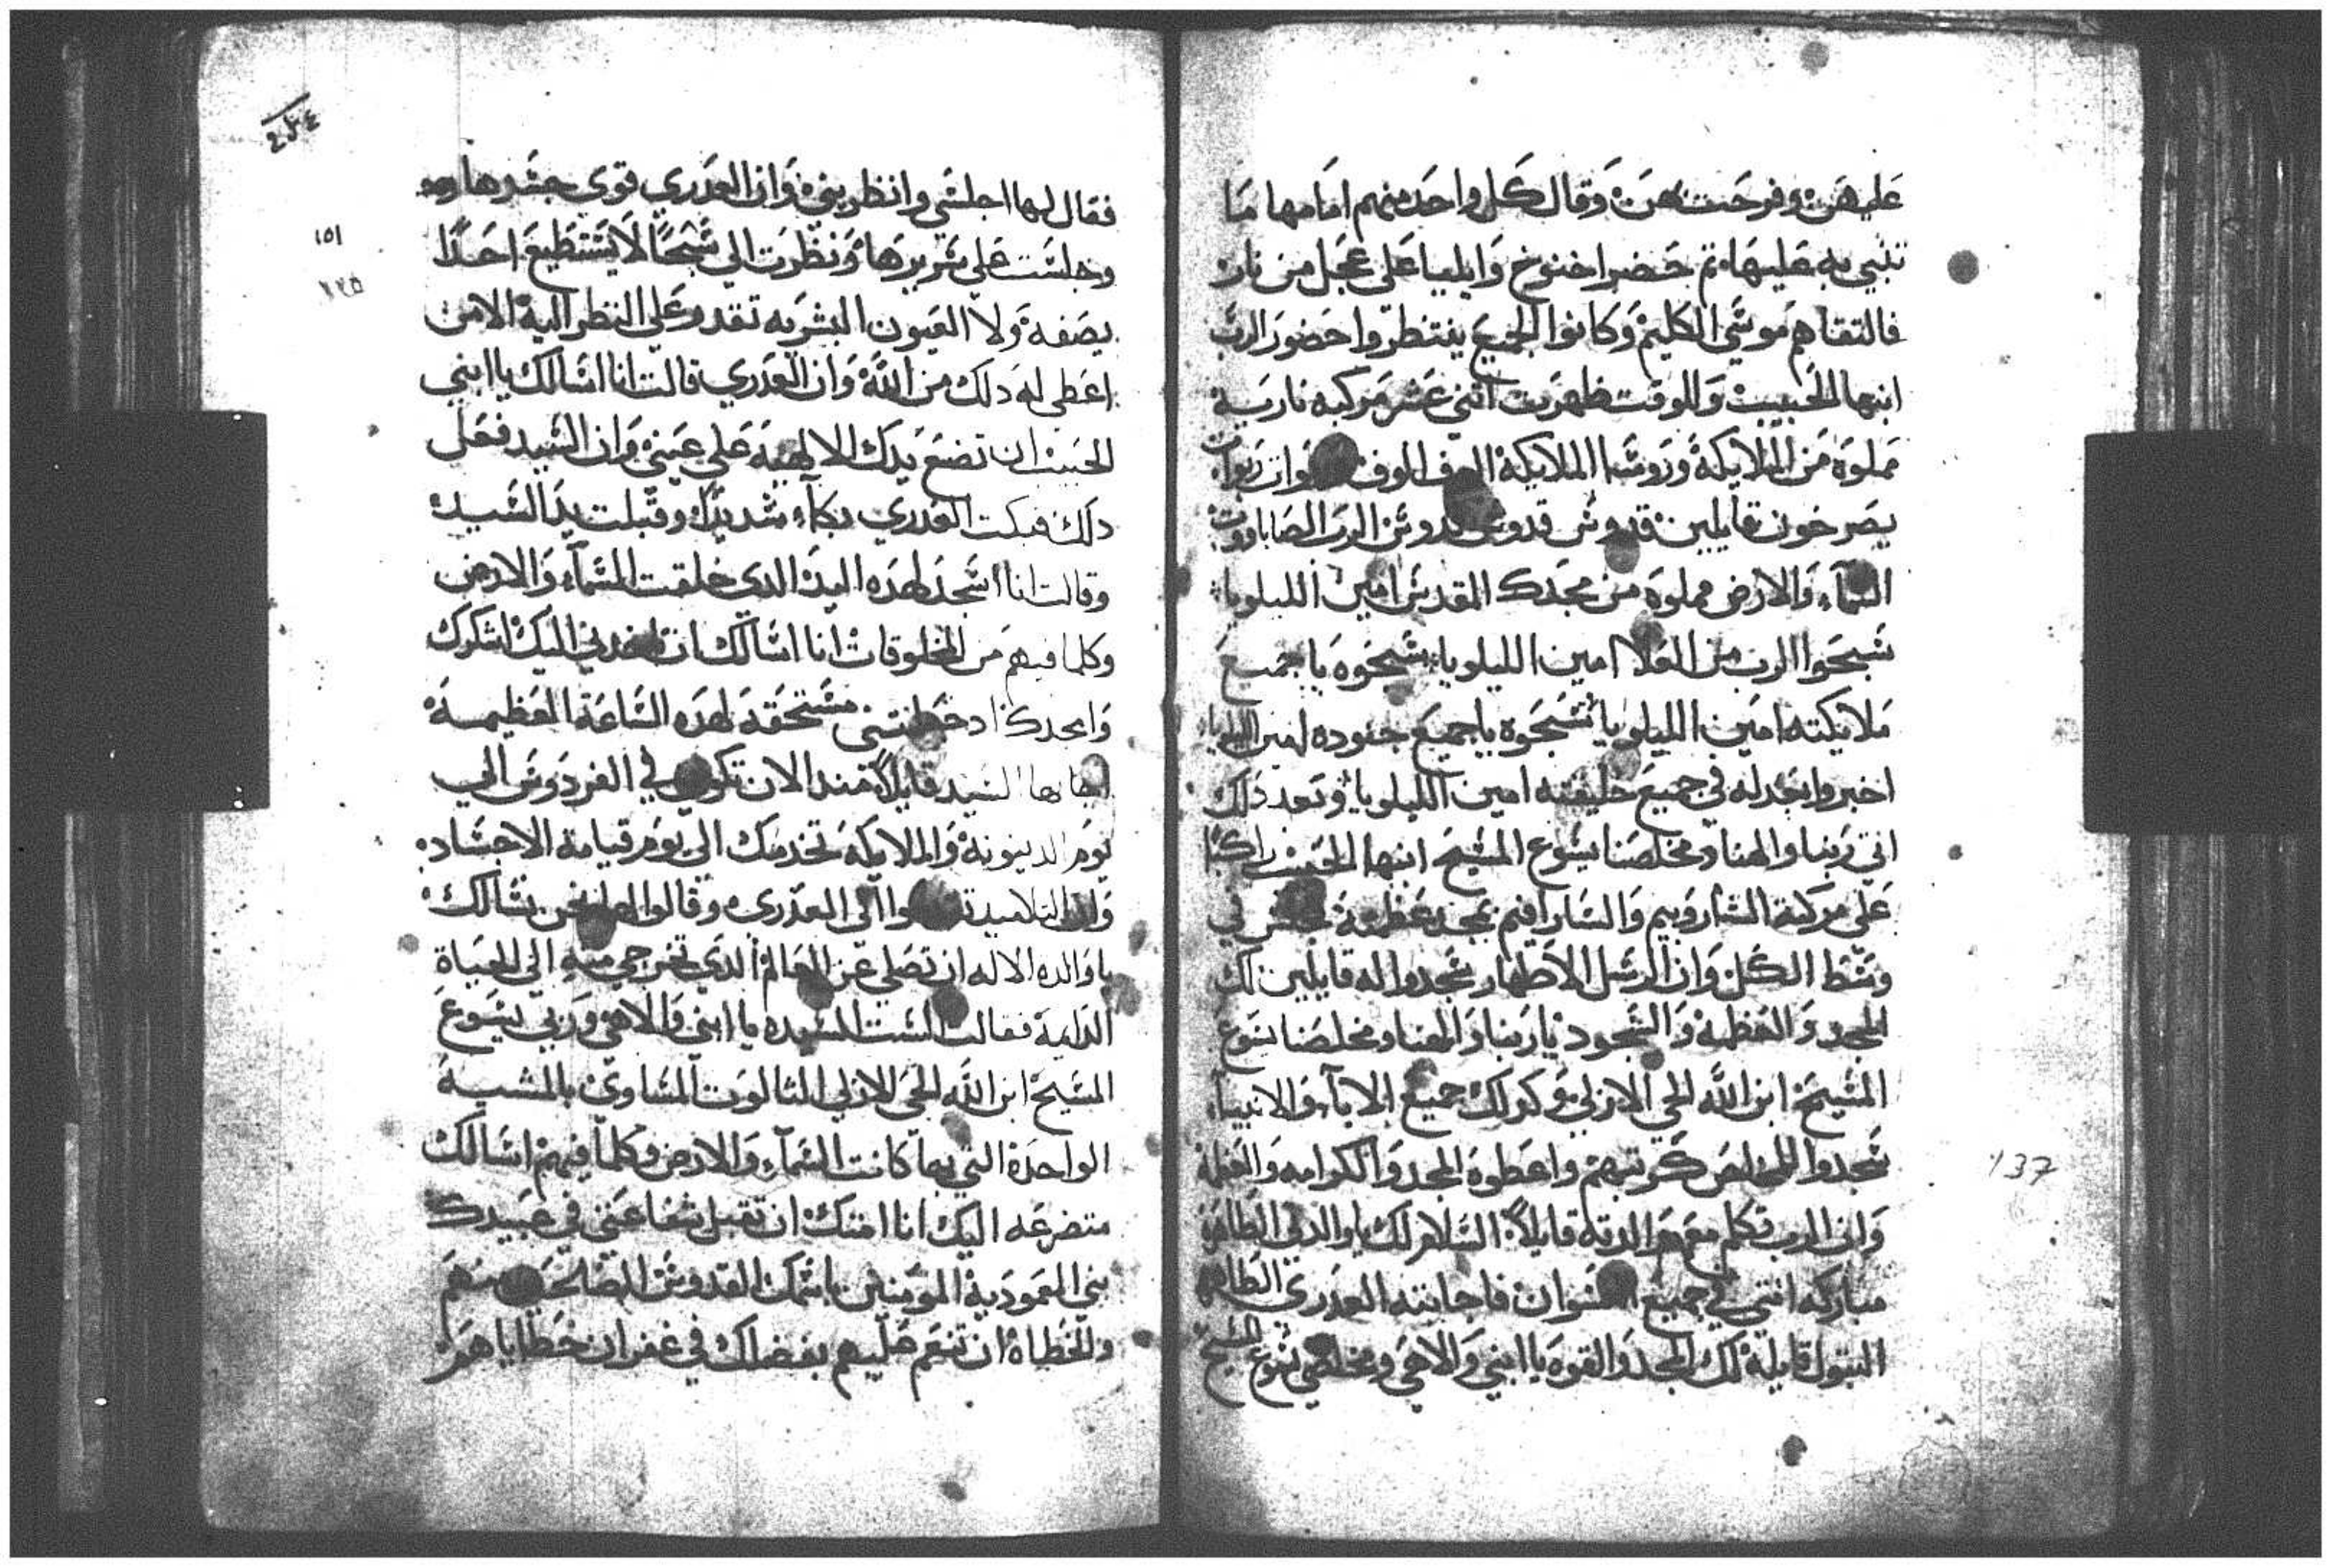 عليهن وفرحت بهن وقال كل واحد منهم امامها ما
تنبي به عليها تم حضر اخنوخ وايليا على عجل من نار
فالتقاهم موسي الكليم وكانوا الجميع ينتظروا حضور الرب
ابنها الحبيب وللوقت ظهرت اتني عشر مركبه ناريه
مملوة من الملايكة وروسا الملايكة الوف الوف وربوات ربوات
يصرخون قايلين قدوس قدوس قدوس الرب الصاباووت
السماء والارض مملوة من مجدك المقدس امين الليلويا
سبحوا الرب من العلا امين الليلويا سبحوه يا جميع
ملايكته امين الليلويا سبحوه يا جميع جنوده امين الليلويا
اخبروا بعدله في جميع خليقته امين الليلويا وبعد دلك
اتي ربنا والهنا ومخلصنا يسوع المسيح ابنها الحبيب راكبا
على مركبة الشاروبيم والسارافيم بمجد عظيم في
وسط الكل وان الرسل الاطهار سجدوا له قايلين لك
المجد والعظمة والسجود يا ربنا والهنا ومخلصنا يسوع
المسيح ابن الله الحي الازلي وكدلك جميع الابآء والانبياء
سجدوا للمخلص كرتبهم واعطوه المجد والكرامه والعظمة
وان الرب تكلم مع والدته قايلاً السلام لك يا والدتي الطاهرة
مباركه انتي في جميع النسوان فاجابته العدري الطاهره
البتول قايلة لك المجد والقوه يا ابني والاهي ومخلصي يسوع المسيح
137
٢٣٤
١٥١
فقال لها اجلسي وانظريني وان العدري قوي جسدها
وجلست على سريرها ونظرت الي شبحا لا يستطيع احدا
يصفه ولا العيون البشريه تقدر على النظر اليه الا من
اعطي له دلك من الله وان العدري قالت انا اسالك يا ابني
الحبيب ان تضع يدك الالهية على عيني وان السيد فعل
دلك فبكت العدري بكاء شديدا وقبلت يد السيد
وقالت انا اسجد لهده اليد الدي خلقت السماء والارض
وكلما فيهم من المخلوقات انا اسالك ان تاخدني اليك اشكرك
وامجدك اد جعلتني مستحقه لهده الساعة العظيمة
اجابها السيد قايلاً مند الان تكوني في الفردوس الي
يوم الدينونة والملايكة تخدمك الي يوم قيامة الاجساد
وان التلاميد الي العدري وقالوا لها نحن نسالك
يا والدة الاله ان تصلي عن العالم الدي تخرجي منه الي الحياة
الدايمة فقالت الست السيده يا ابني والاهي وربي يسوع
المسيح ابن الله الحي الازلي التالوت المساوي بالمشية
الواحدة التي بها كانت السماء والارض وكلما فيهم اسالك
متضرعه اليك انا امتك ان تقبل شفاعتي في عبيدك
بني المعمودية المومنين باسمك القدوس الصالحين منهم
والخطاه ان تنعم عليهم بفضلك في غفران خطاياهم